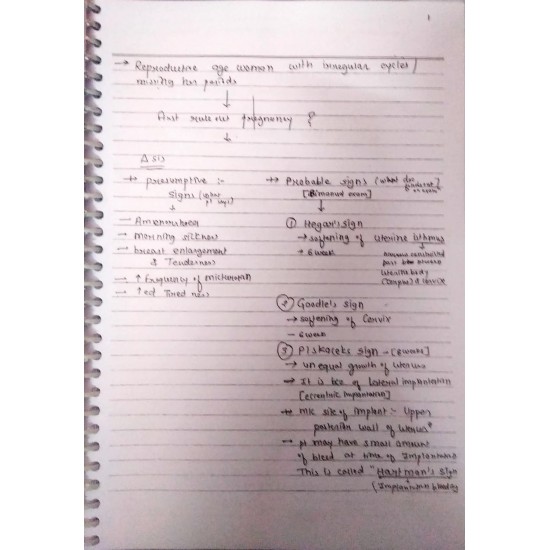 1
→ Reproductive age woman with irregular cycles /
missing her periods
↓
first rule out pregnancy ?
↓
Δsis
→ presumptive :-
signs (what pt says)
↓
- Amenorrhea
- morning sickness
- breast enlargement
& Tenderness
- ↑ frequency of micturation
- ↑ed Tiredness
→ Probable signs (what doc finds out on exam)
[Bimanual exam]
↓
① Hegar's sign
→ softening of uterine isthmus
→ 6 week
part b/w
uterine body
& cervix
② Goodle's sign
→ softening of Cervix
- 6 week
③ Piskaceks sign - [8 weeks]
→ unequal growth of uterus
→ It is bcz of lateral implantation
[eccentric implantation]
→ m/c site of implant :- Upper
posterior wall of uterus*
→ pt may have small amount
of bleed at time of Implantation
This is called "Hartman's sign
(Implantation bleeding